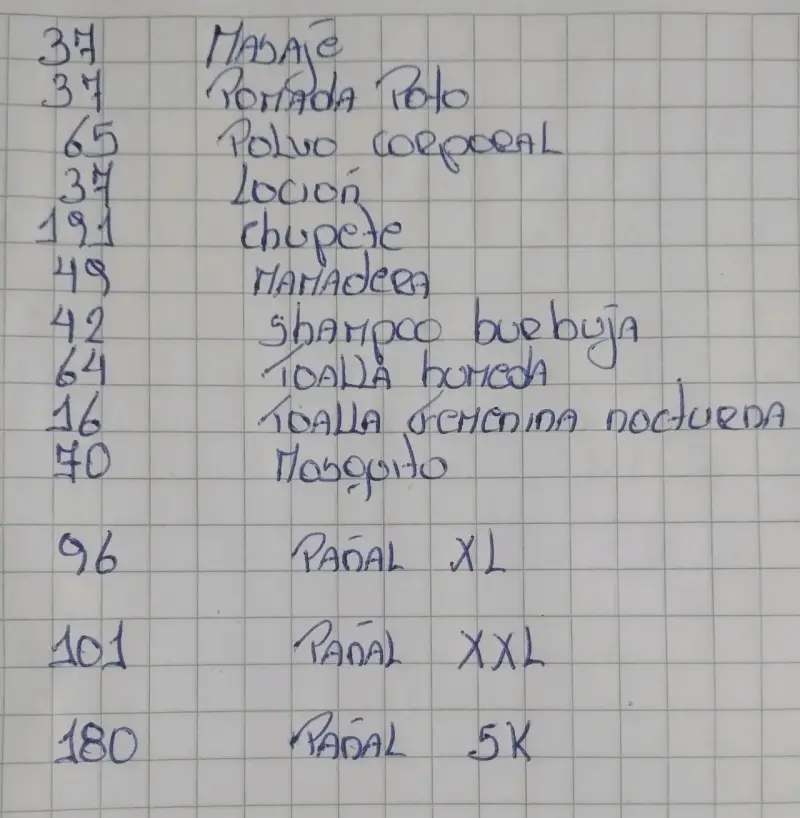 37 MASAJE
37 POMADA Poto
65 POLVO CORPORAL
37 LOCION
191 Chupete
49 MAMADERA
42 ShAMpoo burbujA
64 TOALLA humedA
16 TOALLA FEMENINA nocturnA
70 Mosquito
96 PAÑAL XL
101 PAÑAL XXL
180 PAÑAL SK